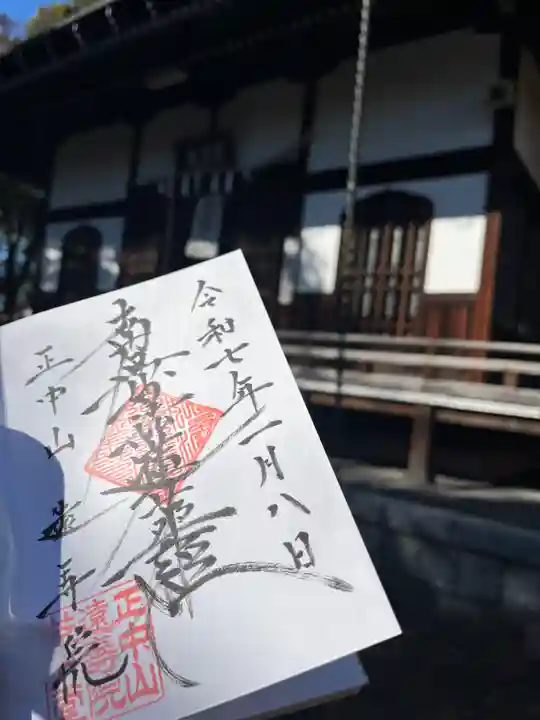 令和七年一月八日
南無妙法蓮華経
正中山 遠寿院
正中山
遠壽院